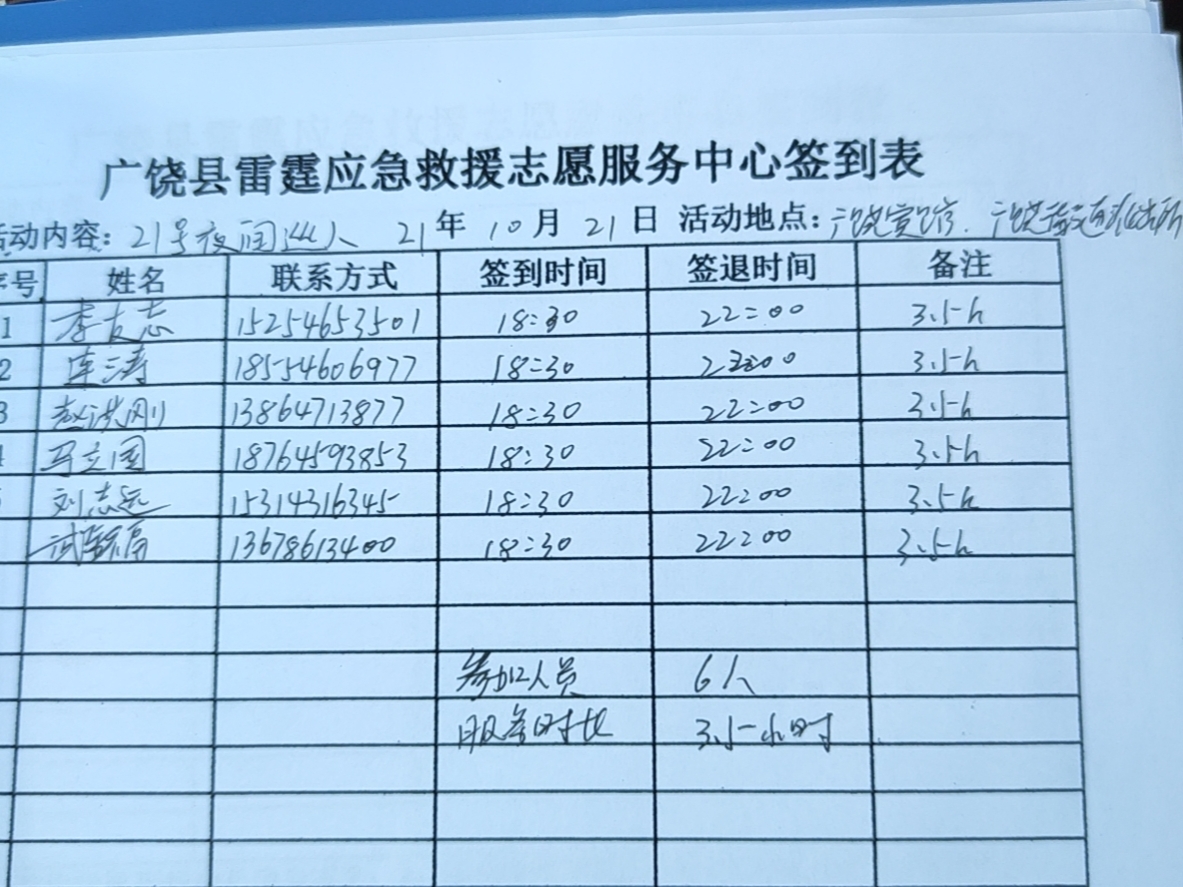 广饶县雷霆应急救援志愿服务中心签到表
活动内容: 21号夜间 21年 10月 21日 活动地点: 广饶宾馆、广饶
序号 姓名 联系方式 签到时间 签退时间 备注
1 李友志 15254653501 18:30 22:00 3.5h
2 连三涛 18554606977 18:30 22:00 3.5h
3 赵洪刚 13864713877 18:30 22:00 3.5h
4 马立国 18764593853 18:30 22:00 3.5h
5 刘志远 15314316345 18:30 22:00 3.5h
13678613400 18:30 22:00 3.5h
参加人员 6人
服务时长 3.5小时